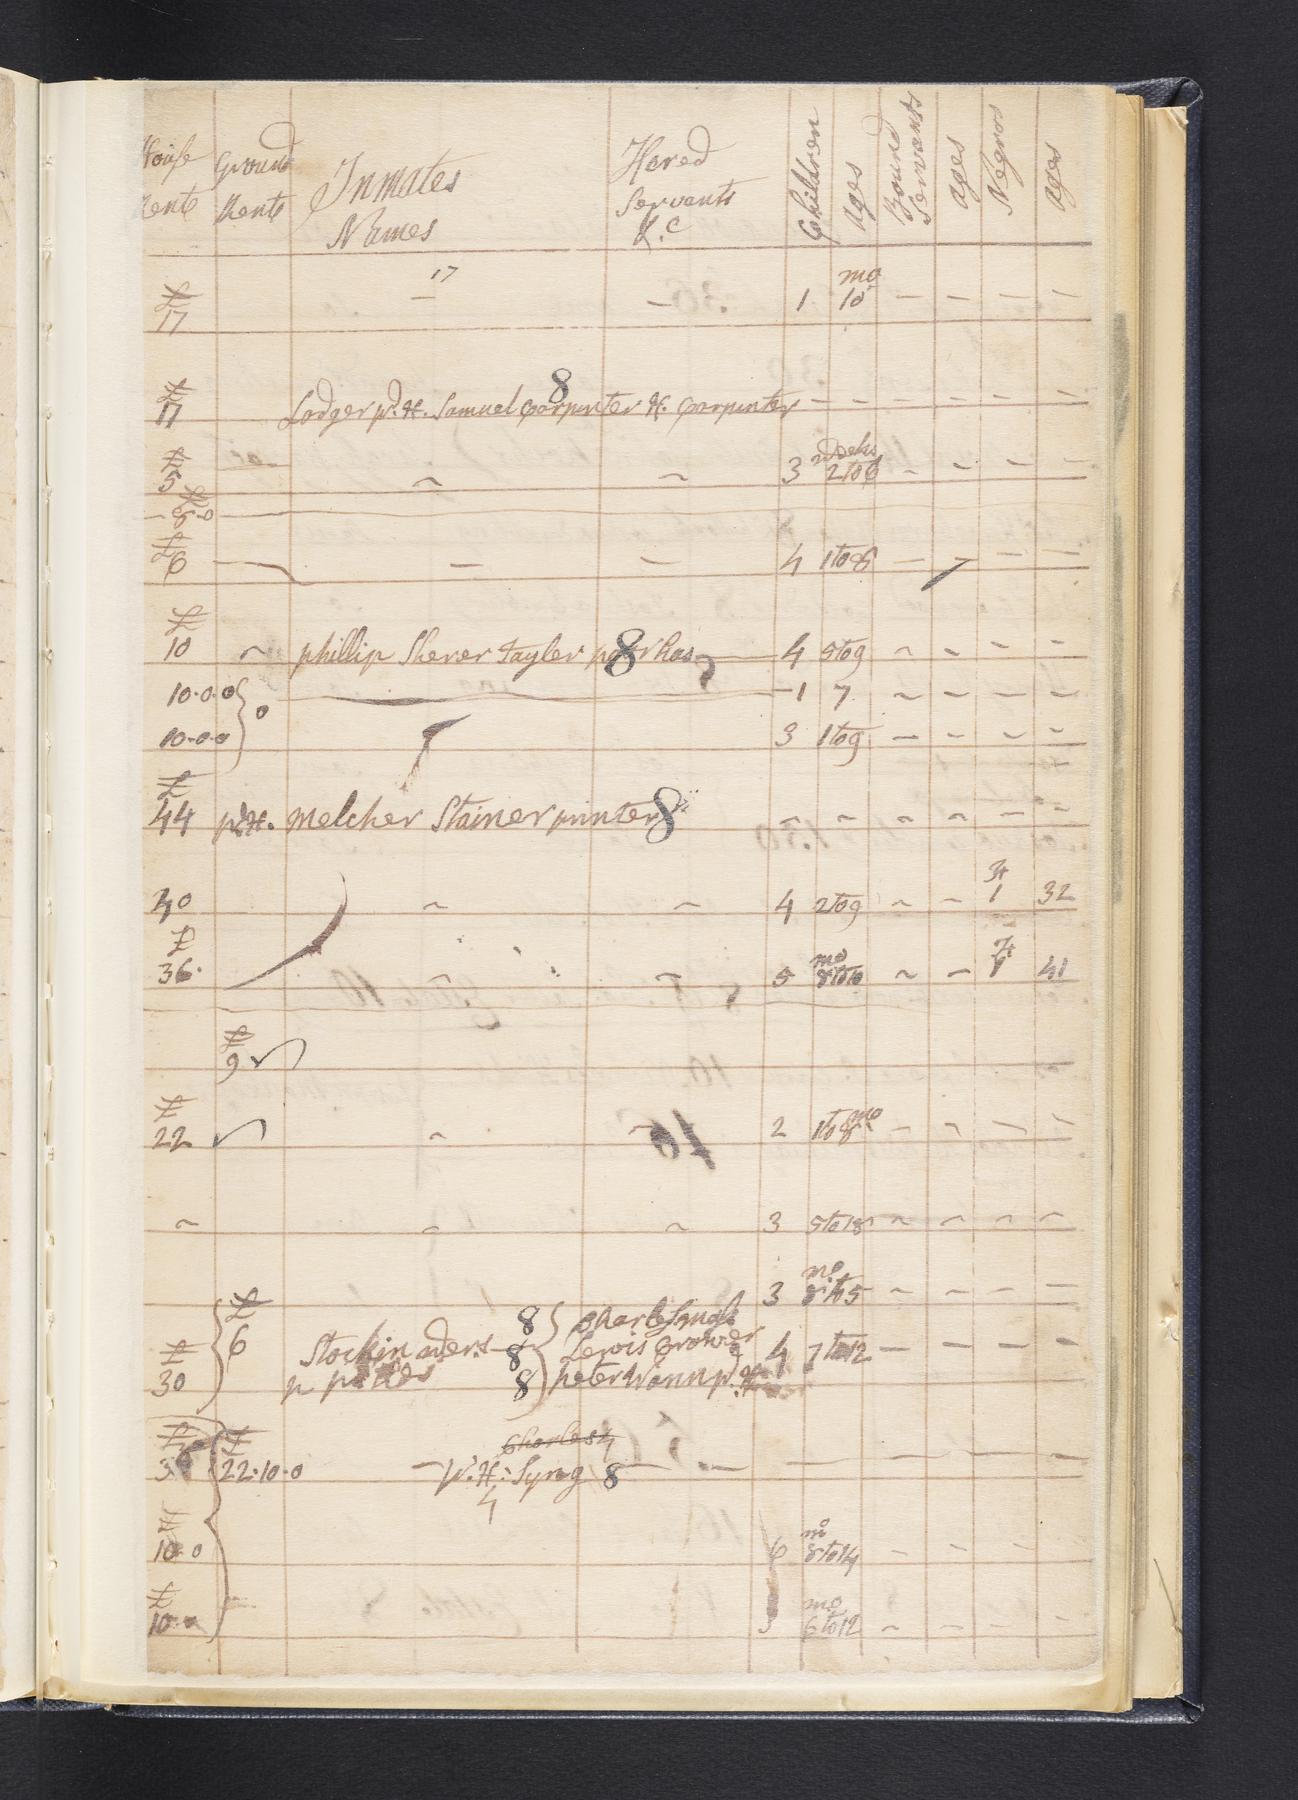 House Rents | Ground Rents | Inmates Names | Hered Servants &.c | Children | ages | Bound Servants | ages | Negros | ages
17
£ 17 — — 1 mo 10 — — — —
£ 17 Lodger pd. H. Samuel Carpenter 8 H. Carpenter — — — — —
£ 5 ~ ~ 3 weeks 2 to 6 - - - -
£ 8-0
£ 6 — — — 4 1 to 8 — — — —
£ 10 ~ phillip Sherer Tayler 8 has 4 5 to 9 ~ ~ ~ ~
10.0.0 } 0 — 1 7 ~ ~ ~ ~
10.0.0 3 1 to 9 — ~ ~ ~
£ 44 pd H. Melcher Stainer printer 8 ~ ~ ~ ~ ~ ~
40 ~ ~ 4 2 to 9 ~ ~ 1 32
£ 36. ~ ~ 5 mo 8 to 10 ~ — 1 41
£ 9
£ 22 ~ ~ 2 1 to 8 mo - - - -
~ ~ ~ 3 5 to 18 ~ ~ ~ ~
3 mo 8 to 5 - - - -
£ 6 8 {
£ 30 Stockin 8 Lewis 4 7 to 12 — — — —
8 peter
£ 22.10.0 Charles
36 — W. H. Syng 8 — — — — —
£ 10 0 6 mo 8 to 14 - - - -
£ 10.0 3 mo 6 to 12 ~ - - -